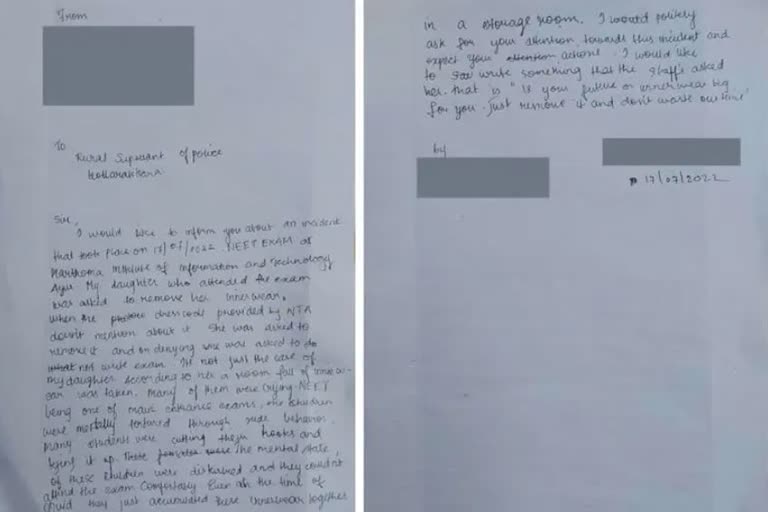 From
To
Rural Supretant of police
Kottarakkara
Sir,
I would like to inform you about an incident
that took place on 17/07/2022. NEET EXAM at
Marthoma Institute of Information and Technology
Ayur. My daughter who attended the exam
was asked to remove her innerwear,
when the dresscode provided by NTA
doesn't mention about it. She was asked to
remove it and on denying she was asked to do
not write exam. Its not just the case of
my daughter according to her a room full of innerw-
ear was taken. Many of them were crying. NEET
being one of major entrance exams, the children
were mentally tortured through rude behavior.
Many students were cutting their hooks and
tying it up. These the mental state,
of these children were disturbed and they couldn't
attend the exam comfortably. Even at the time of
covid they just accumulated these innerwear together
in a storage room. I would politely
ask for your attention towards this incident and
expect your attention actions. I would like
to write something that the staffs asked
her. that is " Is your future or innerwear big
for you. Just remove it and don't waste our time"
by
17/07/2022